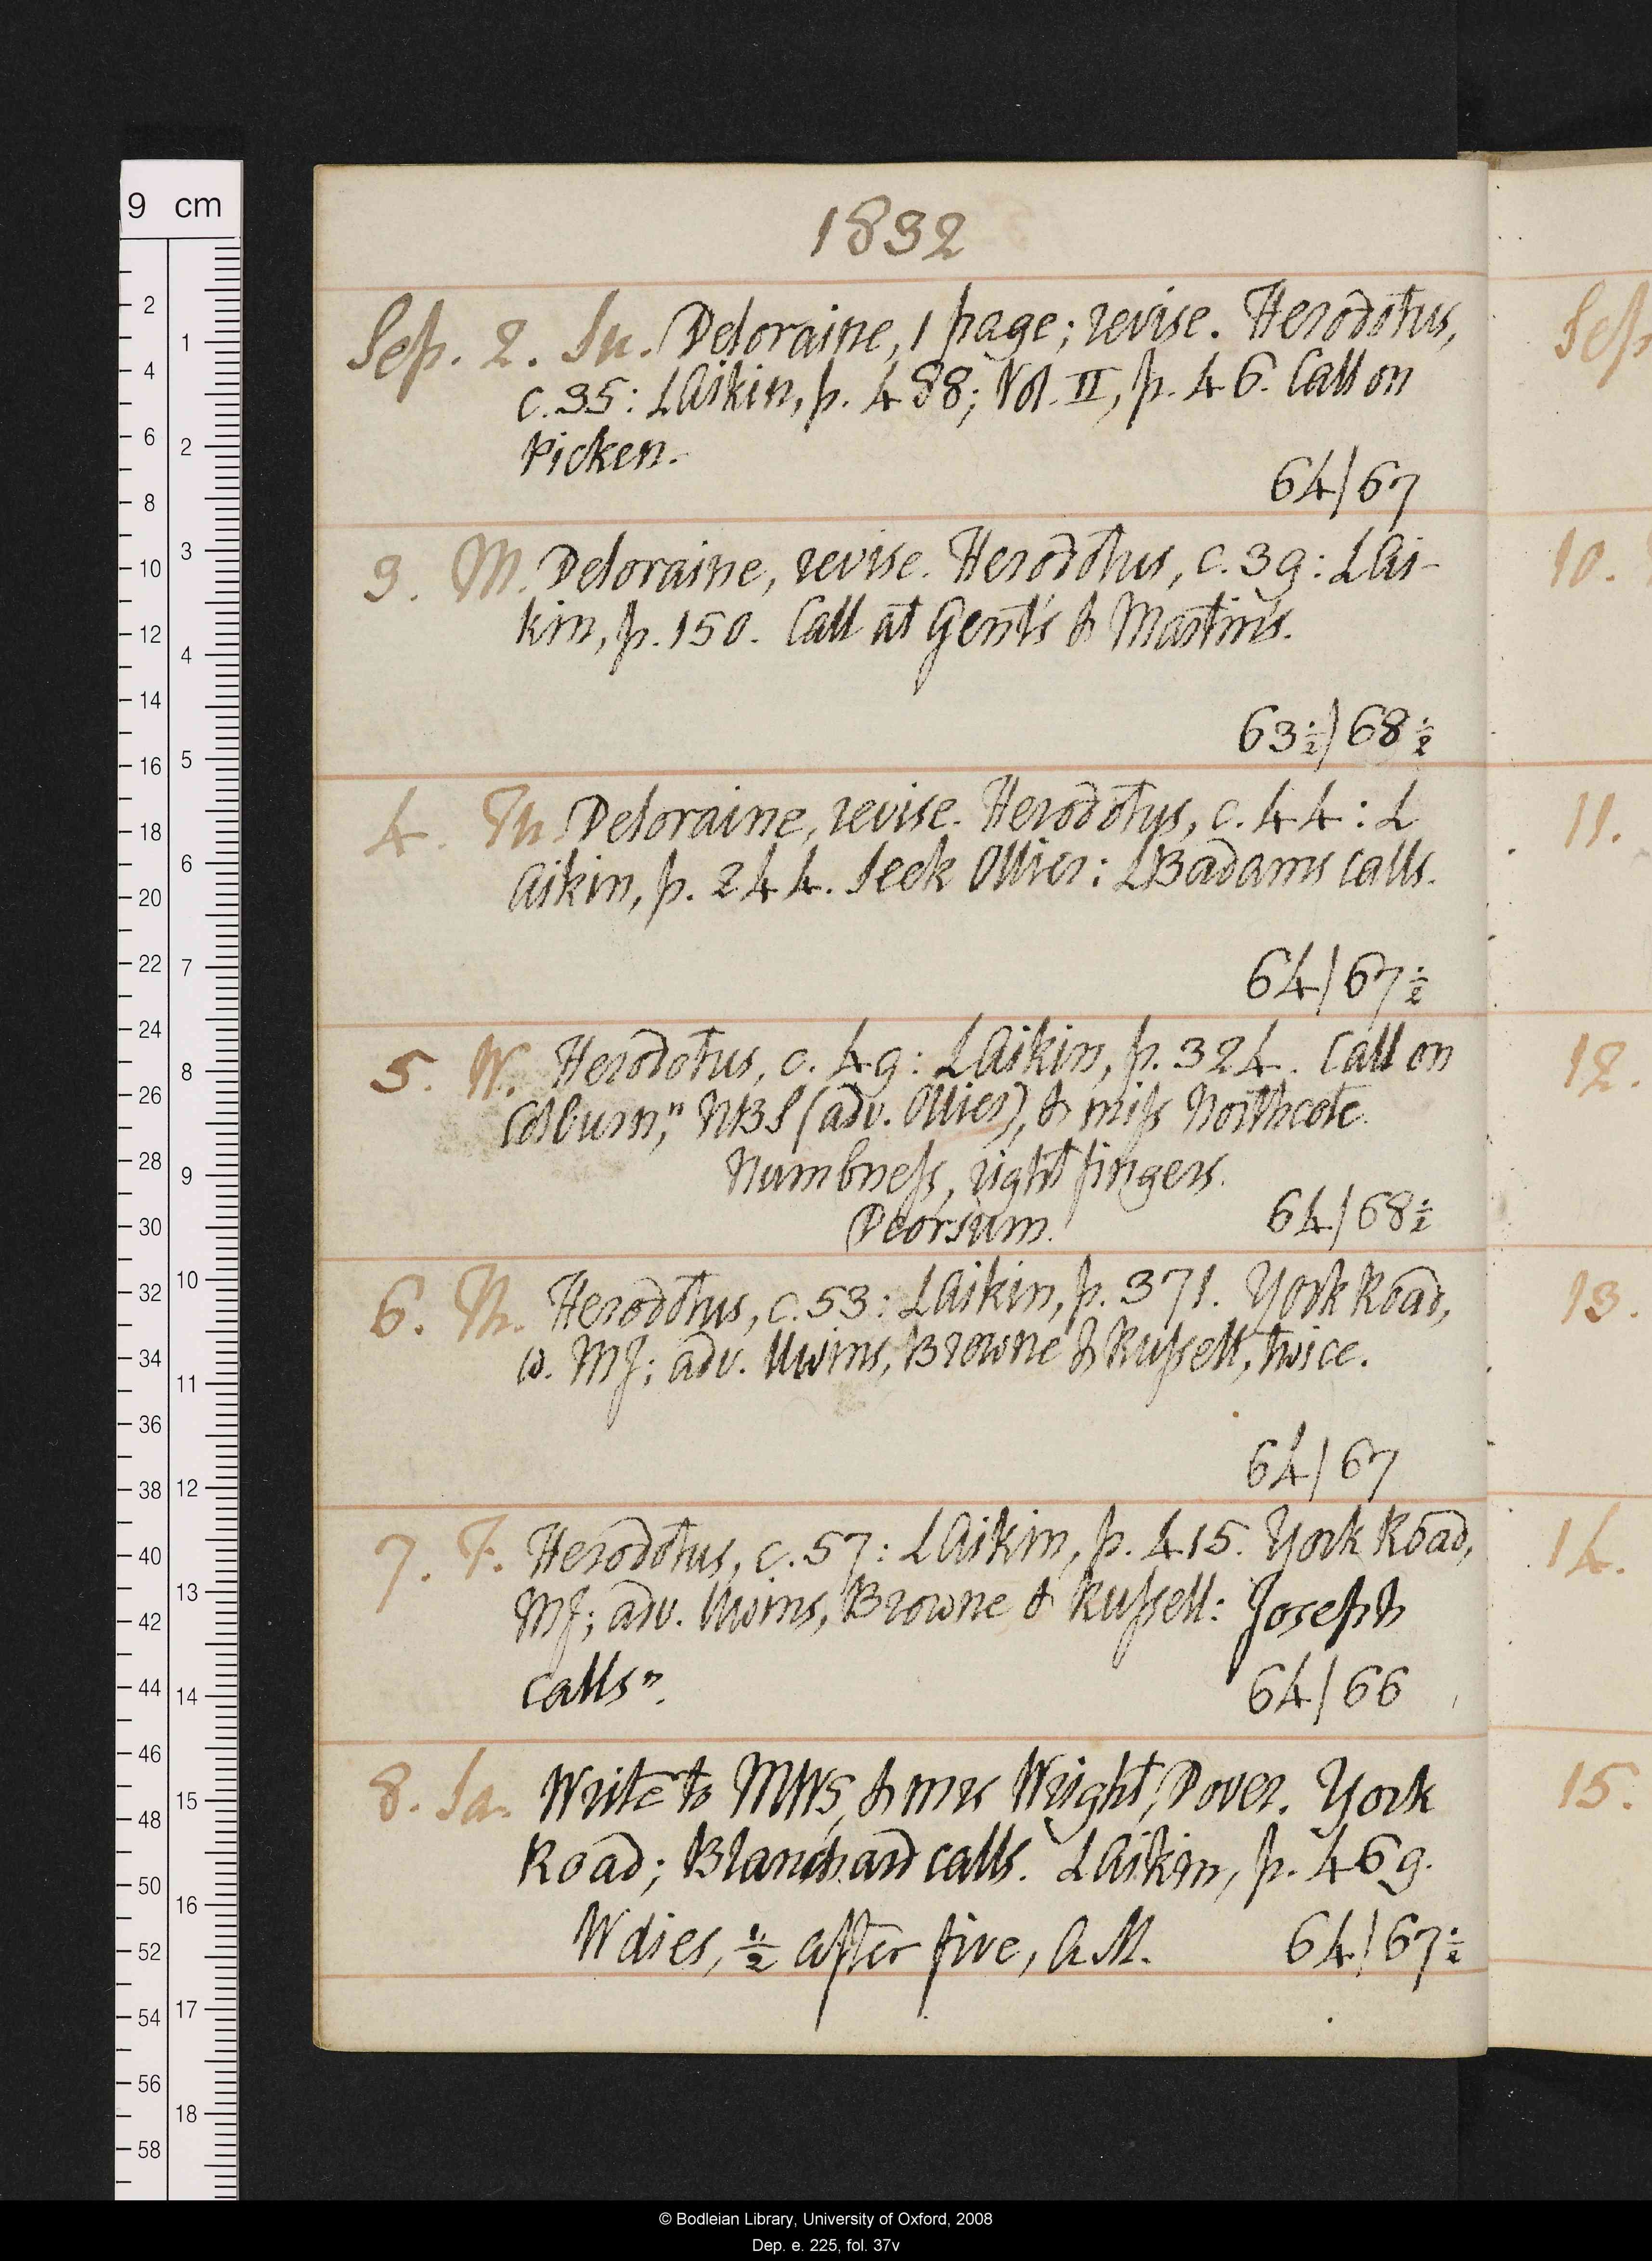 1832
Sep. 2. Su. Deloraine, 1 page; revise. Herodotus,
c. 35: L Aikin, p. 488; Vol. II, p. 46. Call on
Picken.
64/67
3. M. Deloraine, revise. Herodotus, c. 39: L Ai-
kin, p. 150. Call at Gent's & Martin's.
63½/68½
4. Tu. Deloraine, revise. Herodotus, c. 44: L
Aikin, p. 244. Seek Ollier: L Badams calls.
64/67½
5. W. Herodotus, c. 49: L Aikin, p. 324. Call on
Colburn,n NBS (adv. Ollier), & miss Northcote.
Numbness, right fingers.
Deorsum.
64/68½
6. Th. Herodotus, c. 53: L Aikin, p. 371. York Road,
w. MJ; adv. Uwins, Browne & Russell, twice.
64/67
7. F. Herodotus, c. 57: L Aikin, p. 415. York Road,
MJ; adv. Uwins, Browne & Russell: Joseph
calls n.
64/66
8. Sa. Write to MWS, & mrs Wright, Dover. York
Road; Blanchard calls. L Aikin, p. 469.
W dies, ½ after five, A.M.
64/67½
Sep
10.
11.
12.
13.
14.
15.
9 cm
2
4
6
8
10
12
14
16
18
20
22
24
26
28
30
32
34
36
38
40
42
44
46
48
50
52
54
56
58
1
2
3
4
5
6
7
8
9
10
11
12
13
14
15
16
17
18
© Bodleian Library, University of Oxford, 2008
Dep. e. 225, fol. 37v